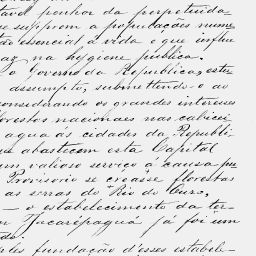 penhor da perpetuidade
supprem a populações nume
tão essencial á vida e que influe
na hygiene publica.
o Governo da Republica, este
assumpto, submettendo-o ao
considerando os grandes interesses
florestos nacionaes nas cabecei
agua ás cidades da Republi
que abastecem esta Capital
um valioso serviço á causa pu
Provisorio se creasse florestas
as serras do Rio do Ouro,
— o estabelecimento da ter-
Jacarépaguá já foi um
fundação d'esses estabele-